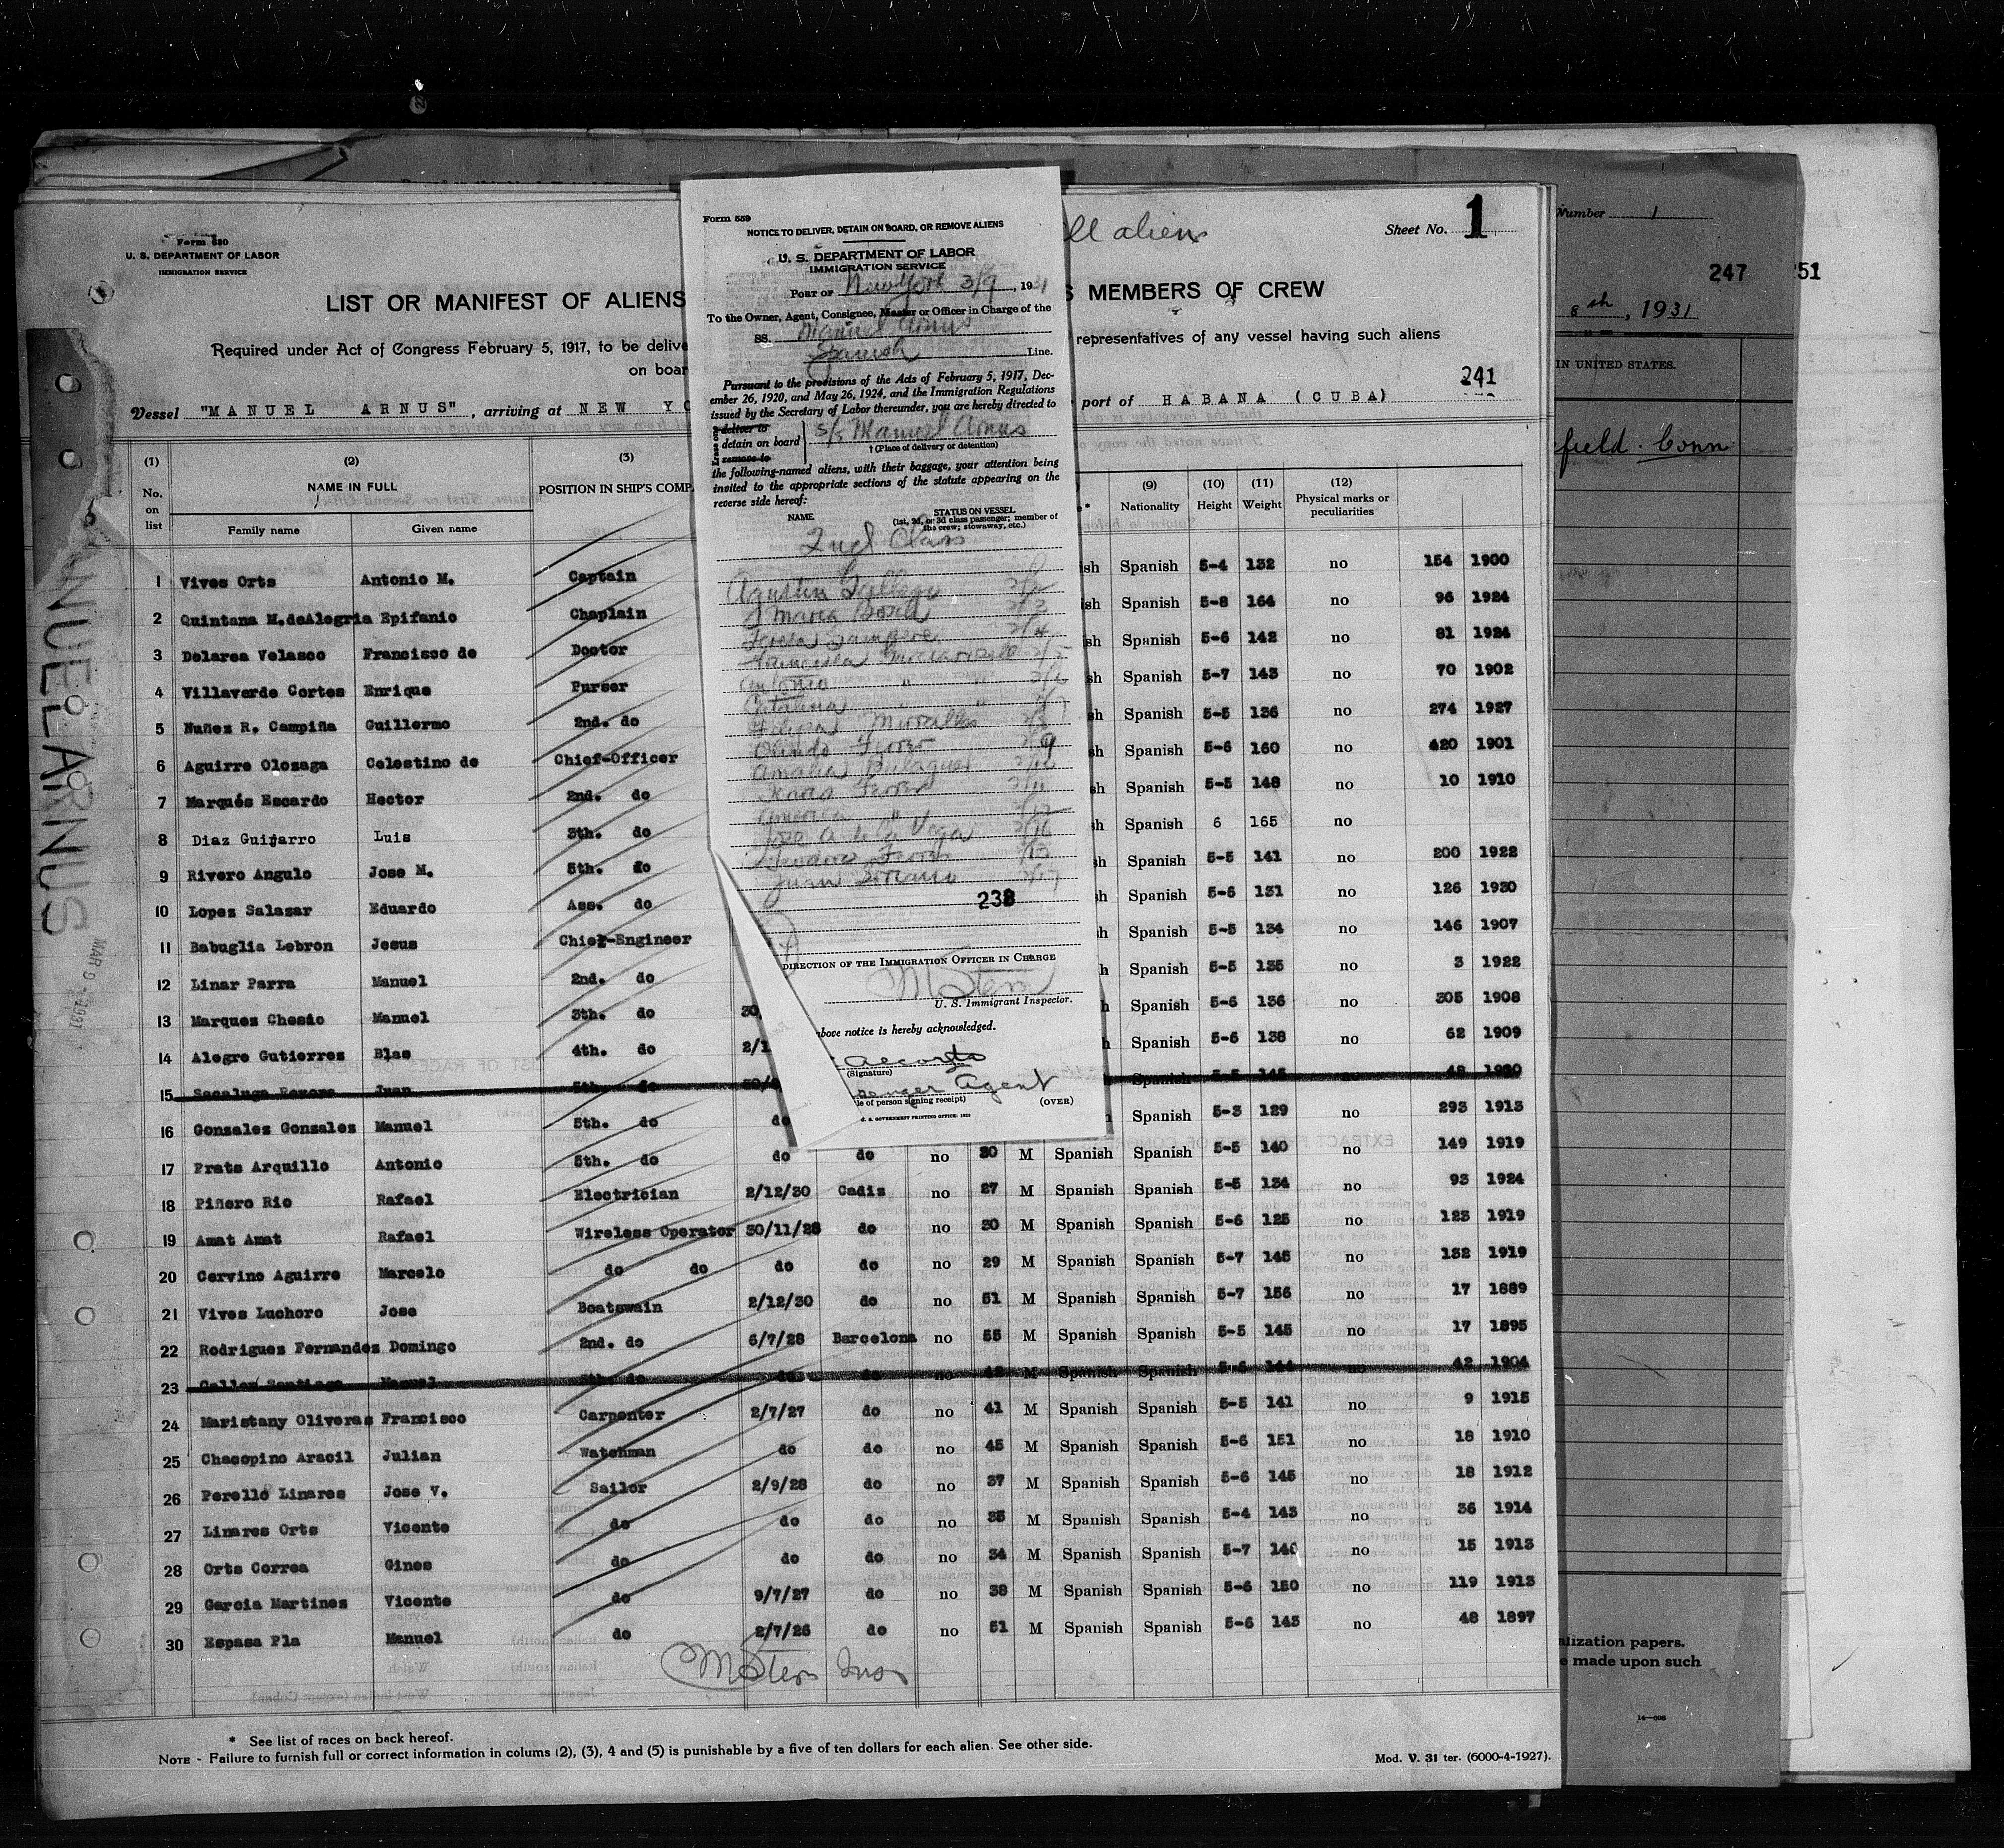 Form 680
U. S. DEPARTMENT OF LABOR
IMMIGRATION SERVICE
ll aliens
Sheet No. 1
LIST OR MANIFEST OF ALIENS
S MEMBERS OF CREW
Required under Act of Congress February 5, 1917, to be delive
representatives of any vessel having such aliens
on boar
241
Vessel "MANUEL ARNUS", arriving at NEW YO
port of HABANA (CUBA)
(1) (2) (3) (9) (10) (11) (12)
No. on list NAME IN FULL POSITION IN SHIP'S COMP Nationality Height Weight Physical marks or peculiarities
Family name Given name
1 Vives Orts Antonio M. Captain sh Spanish 5-4 132 no 154 1900
2 Quintana M.deAlegria Epifanio Chaplain sh Spanish 5-8 164 no 96 1924
3 Delarea Velasco Francisco de Doctor sh Spanish 5-6 142 no 81 1924
4 Villaverde Cortes Enrique Purser sh Spanish 5-7 143 no 70 1902
5 Nuñez R. Campiña Guillermo 2nd. do sh Spanish 5-5 136 no 274 1927
6 Aguirre Olozaga Celestino de Chief-Officer sh Spanish 5-6 160 no 420 1901
7 Marqués Escardo Hector 2nd. do sh Spanish 5-5 148 no 10 1910
8 Diaz Guijarro Luis 3th. do sh Spanish 6 165 no
9 Rivero Angulo Jose M. 5th. do sh Spanish 5-5 141 no 200 1922
10 Lopez Salazar Eduardo Ass. do sh Spanish 5-6 131 no 126 1930
11 Babuglia Lebron Jesus Chief-Engineer h Spanish 5-5 134 no 146 1907
12 Linar Parra Manuel 2nd. do h Spanish 5-5 135 no 3 1922
13 Marques Chesio Manuel 3th. do 30 h Spanish 5-6 136 no 305 1908
14 Alegre Gutierres Blas 4th. do 2/1 h Spanish 5-6 138 no 62 1909
15 Juan 5th. do Spanish 5-5 145 no 48 1920
16 Gonzales Gonzales Manuel 5th. do do Spanish 5-3 129 no 293 1913
17 Prats Arquillo Antonio 5th. do do do no 30 M Spanish Spanish 5-5 140 no 149 1919
18 Piñero Rio Rafael Electrician 2/12/30 Cadiz no 27 M Spanish Spanish 5-5 134 no 93 1924
19 Amat Amat Rafael Wireless Operator 30/11/28 do no 30 M Spanish Spanish 5-6 125 no 123 1919
20 Cervino Aguirre Marcelo do do do do no 29 M Spanish Spanish 5-7 145 no 132 1919
21 Vives Luchoro Jose Boatswain 2/12/30 do no 51 M Spanish Spanish 5-7 156 no 17 1889
22 Rodrigues Fernandez Domingo 2nd. do 6/7/28 Barcelona no 55 M Spanish Spanish 5-5 145 no 17 1895
23 Manuel do no M Spanish Spanish 5-6 144 no 42 1904
24 Maristany Oliveras Francisco Carpenter 2/7/27 do no 41 M Spanish Spanish 5-5 141 no 9 1915
25 Chacopino Aracil Julian Watchman do do no 45 M Spanish Spanish 5-6 151 no 18 1910
26 Perelló Linares Jose V. Sailor 2/9/28 do no 37 M Spanish Spanish 5-6 145 no 18 1912
27 Linares Orts Vicente do do do no 35 M Spanish Spanish 5-4 143 no 36 1914
28 Orts Correa Gines do do do no 34 M Spanish Spanish 5-7 140 no 15 1913
29 Garcia Martines Vicente do 9/7/27 do no 38 M Spanish Spanish 5-6 150 no 119 1913
30 Espasa Pla Manuel do 2/7/26 do no 51 M Spanish Spanish 5-6 143 no 48 1897
M Stern Ins
* See list of races on back hereof.
NOTE - Failure to furnish full or correct information in colums (2), (3), 4 and (5) is punishable by a five of ten dollars for each alien. See other side.
Mod. V. 31 ter. (6000-4-1927).
Form 559
NOTICE TO DELIVER, DETAIN ON BOARD, OR REMOVE ALIENS
U. S. DEPARTMENT OF LABOR
IMMIGRATION SERVICE
PORT OF New York 3/9, 1931
To the Owner, Agent, Consignee, Master or Officer in Charge of the
SS. Manuel Arnus
Spanish Line.
Pursuant to the provisions of the Acts of February 5, 1917, Dec-
ember 26, 1920, and May 26, 1924, and the Immigration Regulations
issued by the Secretary of Labor thereunder, you are hereby directed to
deliver to
detain on board S/S Manuel Arnus
remove to
† (Place of delivery or detention)
the following-named aliens, with their baggage, your attention being
invited to the appropriate sections of the statute appearing on the
reverse side hereof:
NAME STATUS ON VESSEL
(1st, 2d, or 3d class passenger; member of
the crew; stowaway, etc.)
2nd Class
Agustin Gallego 2/2
Maria 2/3
Teresa Sampere 2/4
Francisca 2/5
Antonio " " 2/6
Catalina " "
Felipa Miralles
Olindo Ferrer 2/9
Amalia
Maria Ferrer 2/11
America " 2/12
Jose A de la Vega 2/16
Teodoro Ferrer
Juan Soriano 2/17
238
DIRECTION OF THE IMMIGRATION OFFICER IN CHARGE
M Stern
U. S. Immigrant Inspector.
above notice is hereby acknowledged.
(Signature)
Agent
le of person signing receipt)
(OVER)
U. S. GOVERNMENT PRINTING OFFICE: 1928
MANUEL ARNUS
MAR 9 - 1931
Number 1
247
251
8th, 1931
IN UNITED STATES.
field. Conn
alization papers.
e made upon such
14-606